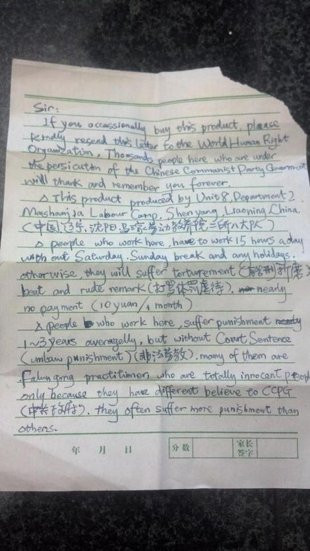 Sir:
If you occassionally buy this product, please
kindly resend this letter to the World Human Right
Organization. Thousands people here who are under
the persicution of the Chinese Communist Party Government
will thank and remember you forever.
This product produced by Unit 8, Department 2,
Mashanjia Labour Camp, Shen Yang, Liaoning, China
(中国,辽宁,沈阳,马三家劳动教养院二所八大队)
people who work here, have to work 15 hours a day
without Saturday, Sunday break and any holidays,
otherwise, they will suffer torturement
beat and rude remark nearly
no payment (10 yuan/1 month)
people who work here, suffer punishment
1~3 years averagelly, but without Court Sentence
(unlaw punishment) (非法劳教), many of them are
Falungong practitioner, who are totally innocent people
only because they have different believe to CCPG
they often suffer more punishment than
others.
年 月 日 分数 家长签字